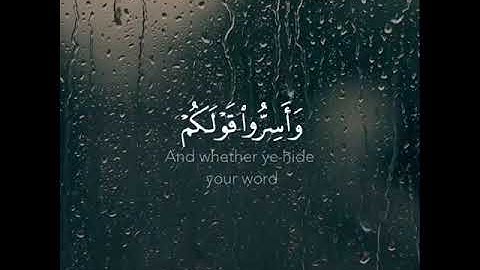 وَأَسِرُّوا۟ قَوْلَكُمْ
And whether ye hide
your word